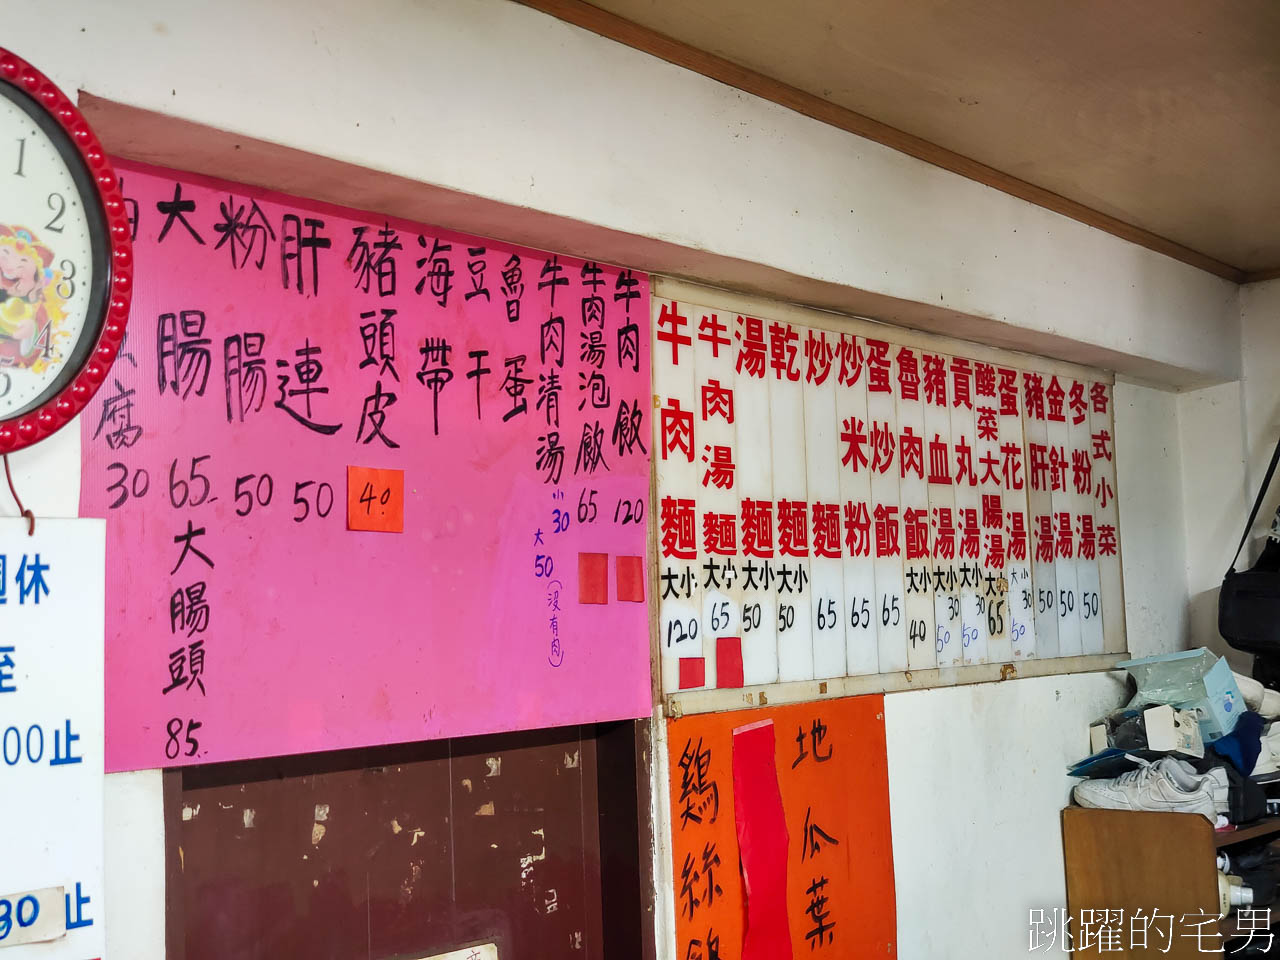 牛肉飯 120
牛肉湯泡飯 65
牛肉清湯 小30 大50 (沒有肉)
魯蛋
豆干
海帶
豬頭皮 40
肝連 50
粉腸 50
大腸 65 大腸頭 85
腐 30
牛肉麵 大小 120
牛肉湯麵 大小 65
湯麵 大小 50
乾麵 大小 50
炒麵 65
炒米粉 65
蛋炒飯 65
魯肉飯 大小 40
豬血湯 大小 30 50
貢丸湯 大小 30 50
酸菜大腸湯 大小 65
蛋花湯 大小 30 50
豬肝湯 50
金針湯 50
冬粉湯 50
各式小菜
地瓜葉
鷄絲
休
至
00止
30止
1
2
3
4
跳躍的宅男